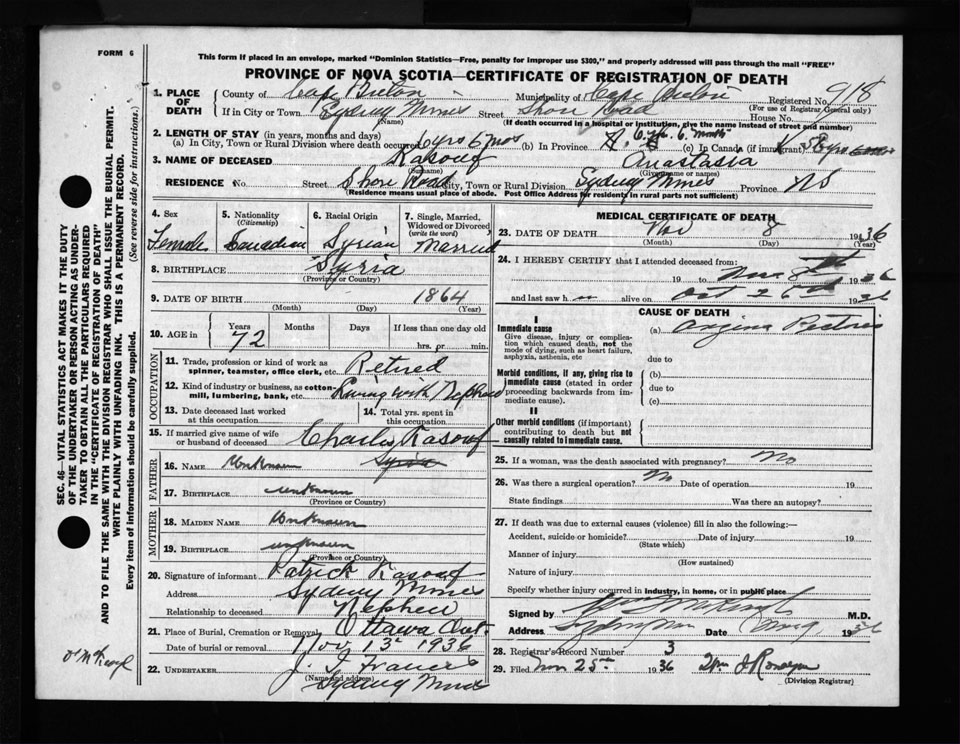 FORM 6
This form if placed in an envelope, marked "Dominion Statistics—Free, penalty for improper use $300," and properly addressed will pass through the mail "FREE"
PROVINCE OF NOVA SCOTIA—CERTIFICATE OF REGISTRATION OF DEATH
SEC. 46—VITAL STATISTICS ACT MAKES IT THE DUTY
OF THE UNDERTAKER OR PERSON ACTING AS UNDER-
TAKER TO OBTAIN ALL THE PARTICULARS REQUIRED
IN THE "CERTIFICATE OF REGISTRATION OF DEATH"
AND TO FILE THE SAME WITH THE DIVISION REGISTRAR WHO SHALL ISSUE THE BURIAL PERMIT.
WRITE PLAINLY WITH UNFADING INK. THIS IS A PERMANENT RECORD.
Every item of information should be carefully supplied. (See reverse side for instructions.)
1. PLACE OF DEATH
County of Cape Breton Municipality of Cape Breton Registered No. 918
(For use of Registrar General only)
If in City or Town Sydney Mines Street Shore Road House No.
(Name) (If death occurred in a hospital or institution, give the name instead of street and number)
2. LENGTH OF STAY (in years, months and days)
(a) In City, Town or Rural Division where death occurred 6 yrs 6 mos (b) In Province (c) In Canada (if immigrant)
3. NAME OF DECEASED Kasouf Anastasia
(Surname) (Given name or names)
RESIDENCE No. Street Shore Road City, Town or Rural Division Sydney Mines Province NS
(Residence means usual place of abode. Post Office Address for residents in rural parts not sufficient)
4. Sex Female
5. Nationality (Citizenship) Canadian
6. Racial Origin Syrian
7. Single, Married, Widowed or Divorced (write the word) Married
8. BIRTHPLACE Syria
(Province or Country)
9. DATE OF BIRTH 1864
(Month) (Day) (Year)
10. AGE in Years 72 Months Days If less than one day old
hrs. pr. min.
OCCUPATION
11. Trade, profession or kind of work as spinner, teamster, office clerk, etc. Retired
12. Kind of industry or business, as cotton-mill, lumbering, bank, etc. Living with Nephew
13. Date deceased last worked at this occupation
14. Total yrs. spent in this occupation
15. If married give name of wife or husband of deceased Charles Kasouf
FATHER
16. NAME Unknown Syria
17. BIRTHPLACE unknown
(Province or Country)
MOTHER
18. MAIDEN NAME Unknown
19. BIRTHPLACE unknown
(Province or Country)
20. Signature of informant Patrick Kasouf
Address Sydney Mines
Relationship to deceased Nephew
21. Place of Burial, Cremation or Removal Ottawa Ont.
Date of burial or removal Nov 13 1936
22. UNDERTAKER J. J. Francis
(Name and address)
Sydney Mines
MEDICAL CERTIFICATE OF DEATH
23. DATE OF DEATH Nov 8 1936
(Month) (Day) (Year)
24. I HEREBY CERTIFY that I attended deceased from:
19 to Nov 8th 1936
and last saw h alive on Oct 26 1936
CAUSE OF DEATH
I
Immediate cause (a) Angina Pectoris
Give disease, injury or complication which caused death, not the mode of dying, such as heart failure, asphyxia, asthenia, etc
due to
Morbid conditions, if any, giving rise to immediate cause (stated in order proceeding backwards from immediate cause). (b)
due to
(c)
II
Other morbid conditions (if important) contributing to death but not causally related to immediate cause.
25. If a woman, was the death associated with pregnancy? No
26. Was there a surgical operation? No Date of operation 19
State findings Was there an autopsy?
27. If death was due to external causes (violence) fill in also the following:—
Accident, suicide or homicide? Date of injury 19
(State which)
Manner of injury
(How sustained)
Nature of injury
Specify whether injury occurred in industry, in home, or in public place
Signed by M.D.
Address Sydney Mines Date 1936
28. Registrar's Record Number 3
29. Filed Nov 25th 1936
(Division Registrar)